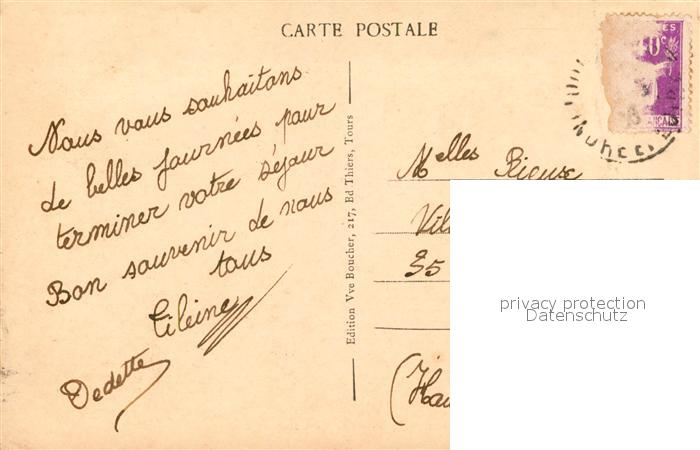 CARTE POSTALE
Nous vous souhaitons
de belles journées pour
terminer votre séjour
Bon souvenir de nous
tous
Dedette
Edition Vve Boucher, 217, Ed Thiers, Tours
Melles Rieuse
Vil
35
(Hau
privacy protection
Datenschutz